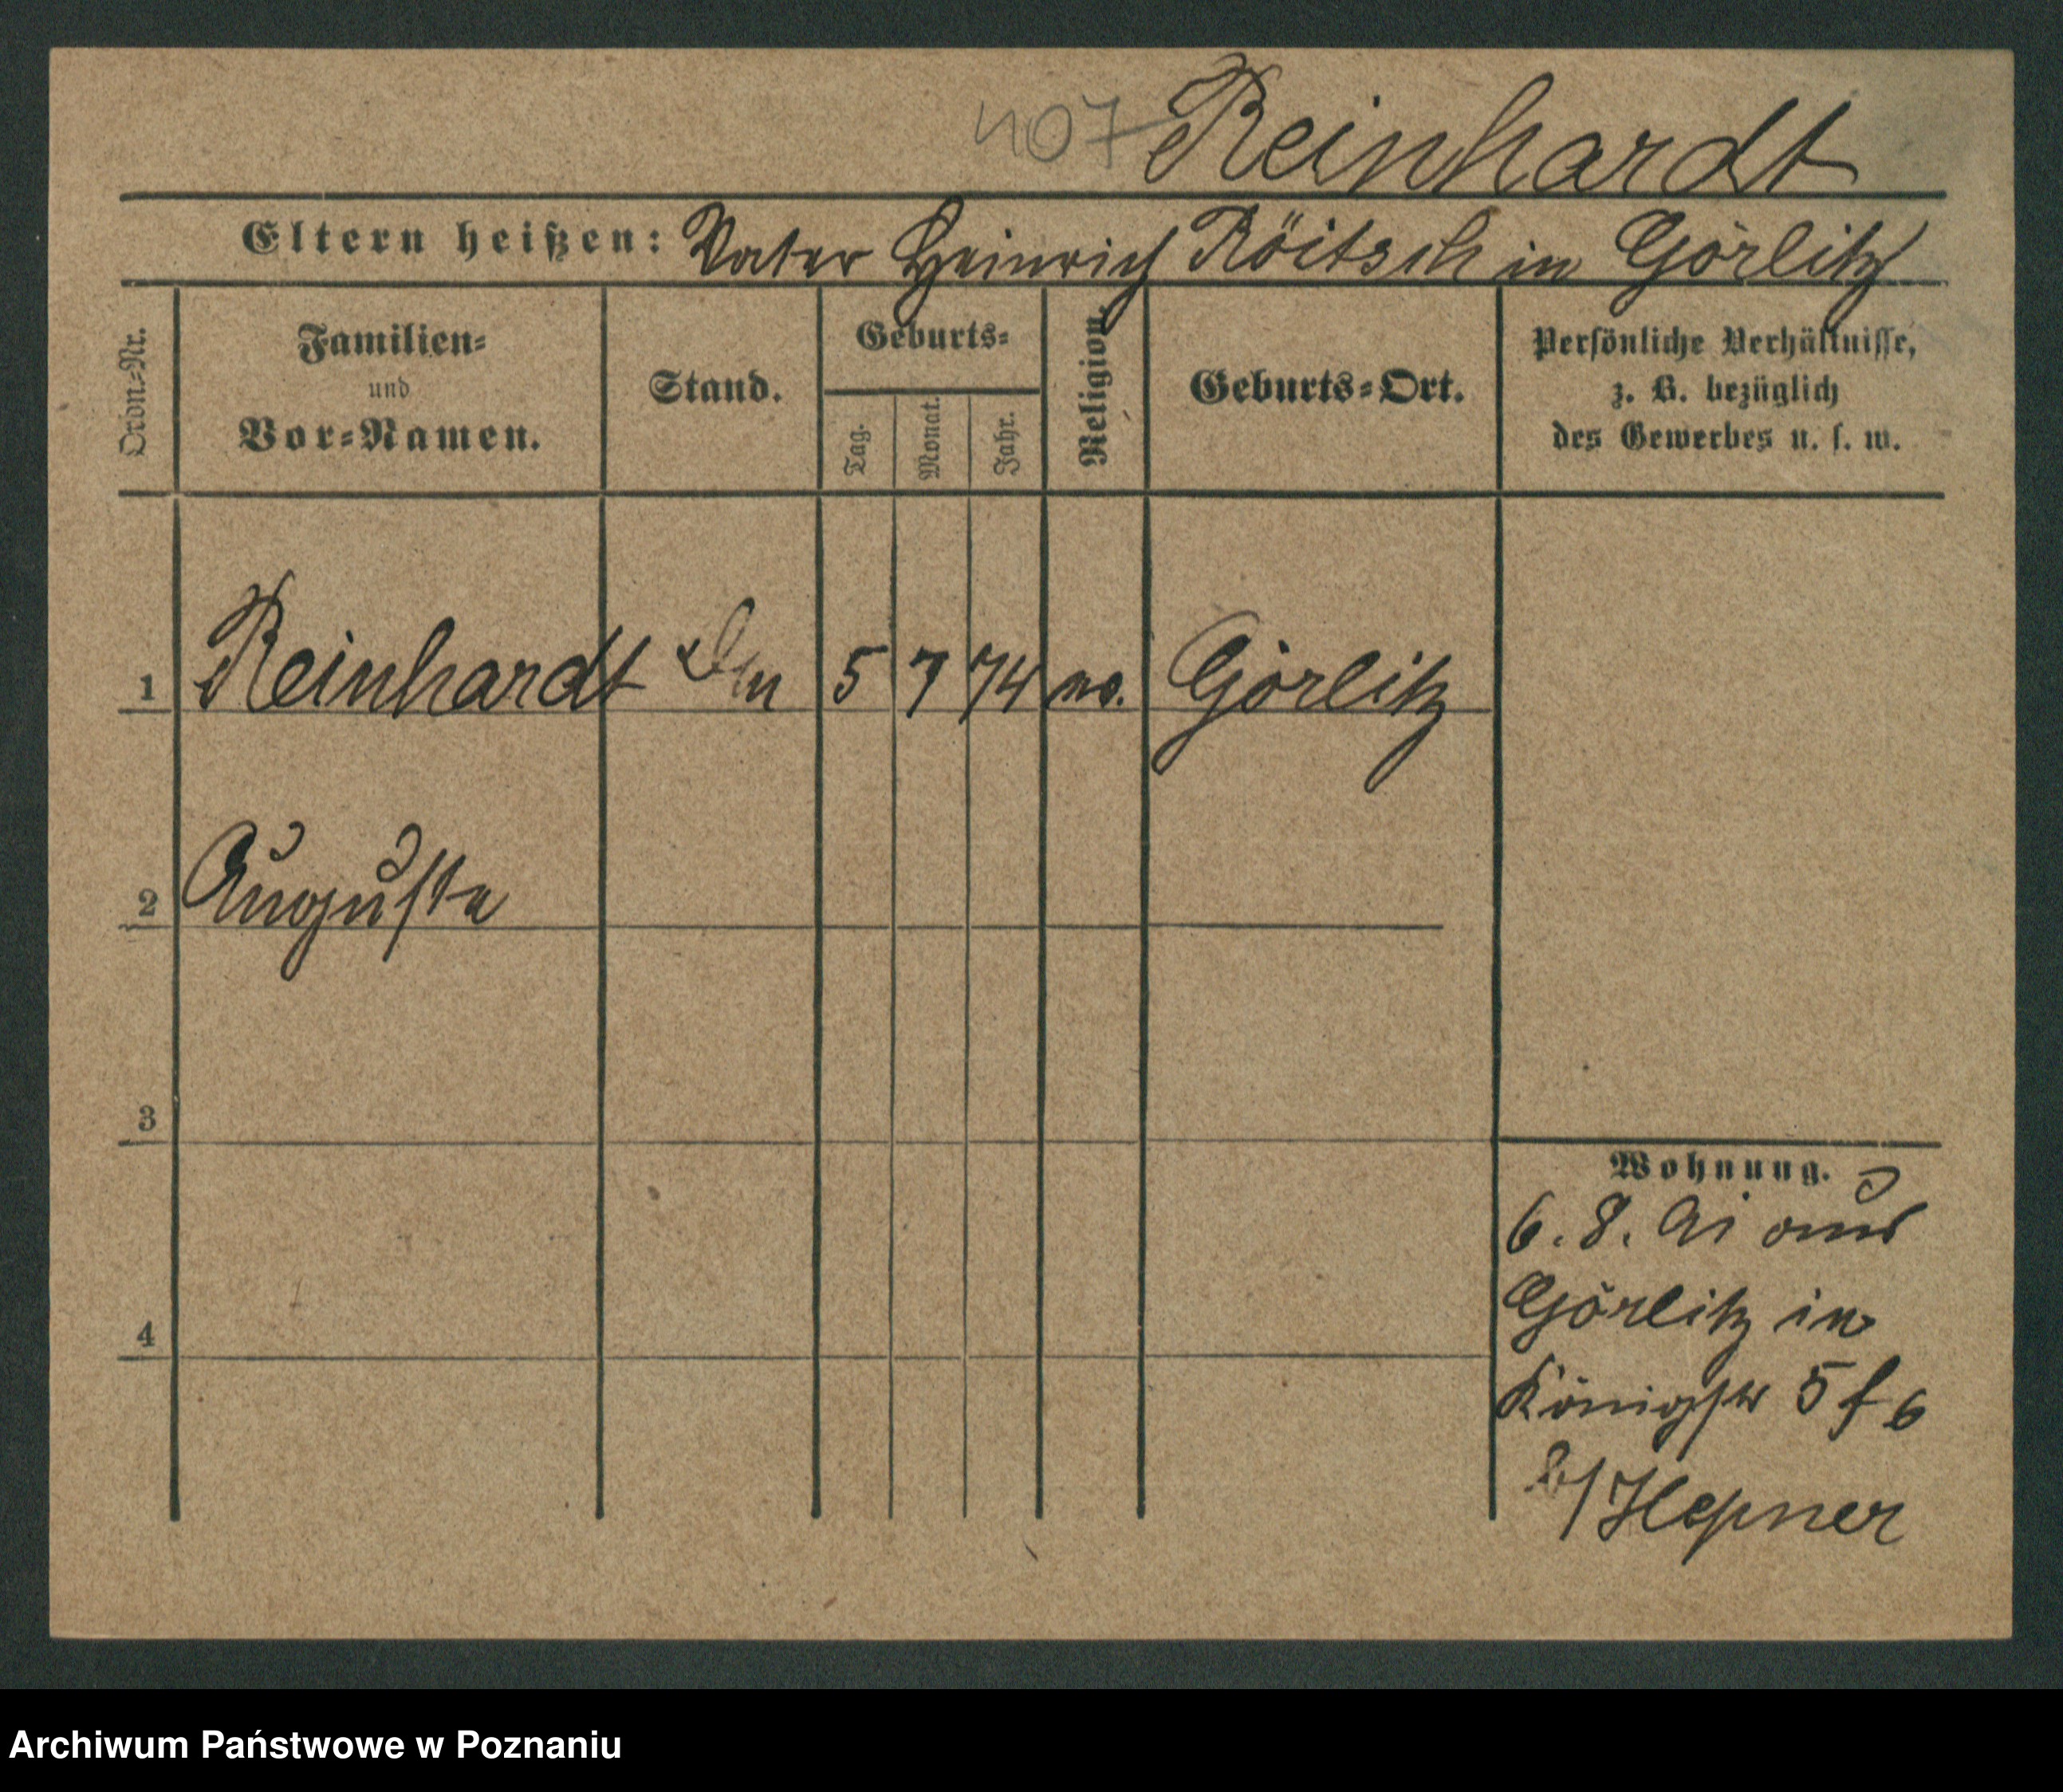 407 Reinhardt
Eltern heißen: Vater Heinrich Röitsch in Görlitz
Ordn.-Nr.
Familien-
und
Vor-Namen.
Stand.
Geburts-
Tag.
Monat.
Jahr.
Religion.
Geburts-Ort.
Persönliche Verhältnisse,
z. B. bezüglich
des Gewerbes u. s. w.
1 Reinhardt 5 7 74 Görlitz
2 Auguste
3
4
Wohnung.
6. 8. aus
Görlitz in
Königstr 5 f 6
b/Hepner
Archiwum Państwowe w Poznaniu